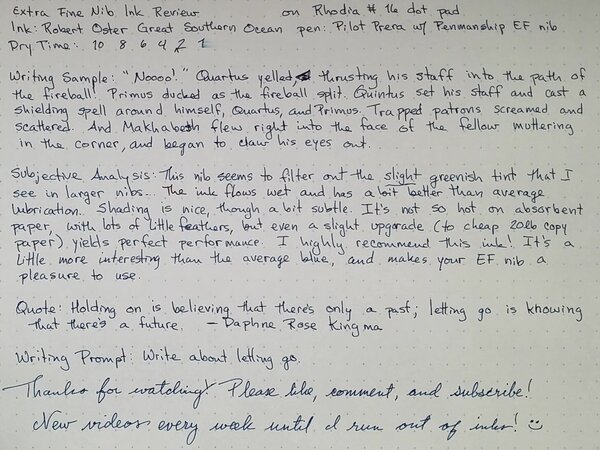 Extra Fine Nib Ink Review on Rhodia # 16 dot pad
Ink: Robert Oster Great Southern Ocean pen: Pilot Prera w/ Penmanship EF nib
Dry Time: 10 8 6 4 2 1
Writing Sample: "Noooo!" Quartus yelled, thrusting his staff into the path of
the fireball. Primus ducked as the fireball split. Quintus set his staff and cast a
shielding spell around himself, Quartus, and Primus. Trapped patrons screamed and
scattered. And Makhabesh flew right into the face of the fellow muttering
in the corner, and began to claw his eyes out.
Subjective Analysis: This nib seems to filter out the slight greenish tint that I
see in larger nibs... The ink flows wet and has a bit better than average
lubrication. Shading is nice, though a bit subtle. It's not so hot on absorbent
paper, with lots of little feathers, but even a slight upgrade (to cheap 20lb copy
paper) yields perfect performance. I highly recommend this ink! It's a
little more interesting than the average blue, and makes your EF nib a
pleasure to use.
Quote: Holding on is believing that there's only a past; letting go is knowing
that there's a future. - Daphne Rose Kingma
Writing Prompt: Write about letting go.
Thanks for watching! Please like, comment, and subscribe!
New videos every week until I run out of inks! ☺